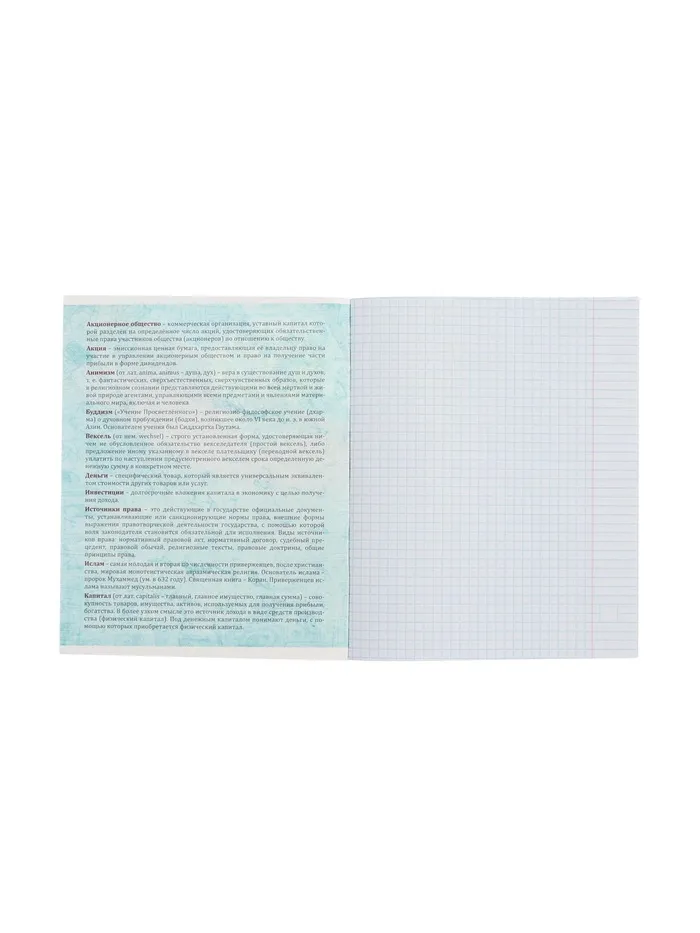 Акционерное общество – коммерческая организация, уставный капитал кото-
рой разделен на определённое число акций, удостоверяющих обязательствен-
ные права участников общества (акционеров) по отношению к обществу.
Акция – эмиссионная ценная бумага, предоставляющая её владельцу право на
участие в управлении акционерным обществом и право на получение части
прибыли в форме дивидендов.
Анимизм (от лат. anima, animus – душа, дух) – вера в существование душ и духов,
т. е. фантастических, сверхъестественных, сверхчувственных образов, которые
в религиозном сознании представляются действующими во всей мёртвой и жи-
вой природе агентами, управляющими всеми предметами и явлениями матери-
ального мира, включая и человека.
Буддизм («Учение Просветленного») – религиозно-философское учение (дхар-
ма) о духовном пробуждении (бодхи), возникшее около VI века до н. э. в южной
Азии. Основателем учения был Сиддхартха Гаутама.
Вексель (от нем. wechsel) – строго установленная форма, удостоверяющая ни-
чем не обусловленное обязательство векселедателя (простой вексель), либо
предложение иному указанному в векселе плательщику (переводной вексель)
уплатить по наступлении предусмотренного векселем срока определенную де-
нежную сумму в конкретном месте.
Деньги – специфический товар, который является универсальным эквивален-
том стоимости других товаров или услуг.
Инвестиции – долгосрочные вложения капитала в экономику с целью получе-
ния дохода.
Источники права – это действующие в государстве официальные докумен-
ты, устанавливающие или санкционирующие нормы права, внешние формы
выражения правотворческой деятельности государства, с помощью которой
воля законодателя становится обязательной для исполнения. Виды источни-
ков права: нормативный правовой акт, нормативный договор, судебный пре-
цедент, правовой обычай, религиозные тексты, правовые доктрины, общие
принципы права.
Ислам – самая молодая и вторая по численности приверженцев, после христиан-
ства, мировая монотеистическая авраамическая религия. Основатель ислама –
пророк Мухаммед (ум. в 632 году). Священная книга – Коран. Приверженцев ис-
лама называют мусульманами.
Капитал (от лат. capitalis – главный, главное имущество, главная сумма) – сово-
купность товаров, имущества, активов, используемых для получения прибыли,
богатства. В более узком смысле это источник дохода в виде средств производ-
ства (физический капитал). Под денежным капиталом понимают деньги, с по-
мощью которых приобретается физический капитал.